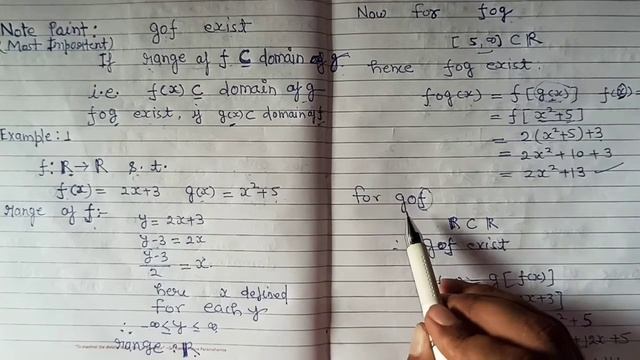 Note Point:
(Most Important)
gof exist
If range of f ⊂ domain of g
i.e. f(x) ⊂ domain of g
fog exist, if g(x) ⊂ domain of f
Example: 1
f: R → R s.t.
f(x) = 2x+3 g(x) = x²+5
range of f:-
y = 2x+3
y-3 = 2x
y-3/2 = x.
here x defined
for each y
∴ -∞ ≤ y ≤ ∞
range : R
Now for fog
[5, ∞) ⊂ R
hence fog exist.
fog(x) = f[g(x)]
= f[x²+5]
= 2(x²+5)+3
= 2x²+10+3
= 2x²+13
for gof
R ⊂ R
∴ gof exist
= g[f(x)]
x+3]
+5
12x+5